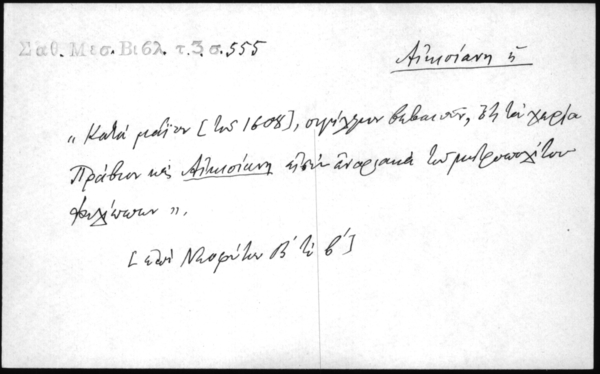 Σαθ. Μεσ. Βιβλ. τ. 3 σ. 555
Αἰκισίανη ἡ
„Κατὰ μάϊον [τοῦ 1608], σιγίλλιον βεβαιοῦν, ὅτι τὰ χωρία
Πράβιον καὶ Αἰκισίανη εἰσὶν ἐναριακὰ τοῦ μητροπολίτου
Φιλίππων".
[ἐπὶ Νεοφύτου Β΄ τὸ β΄]